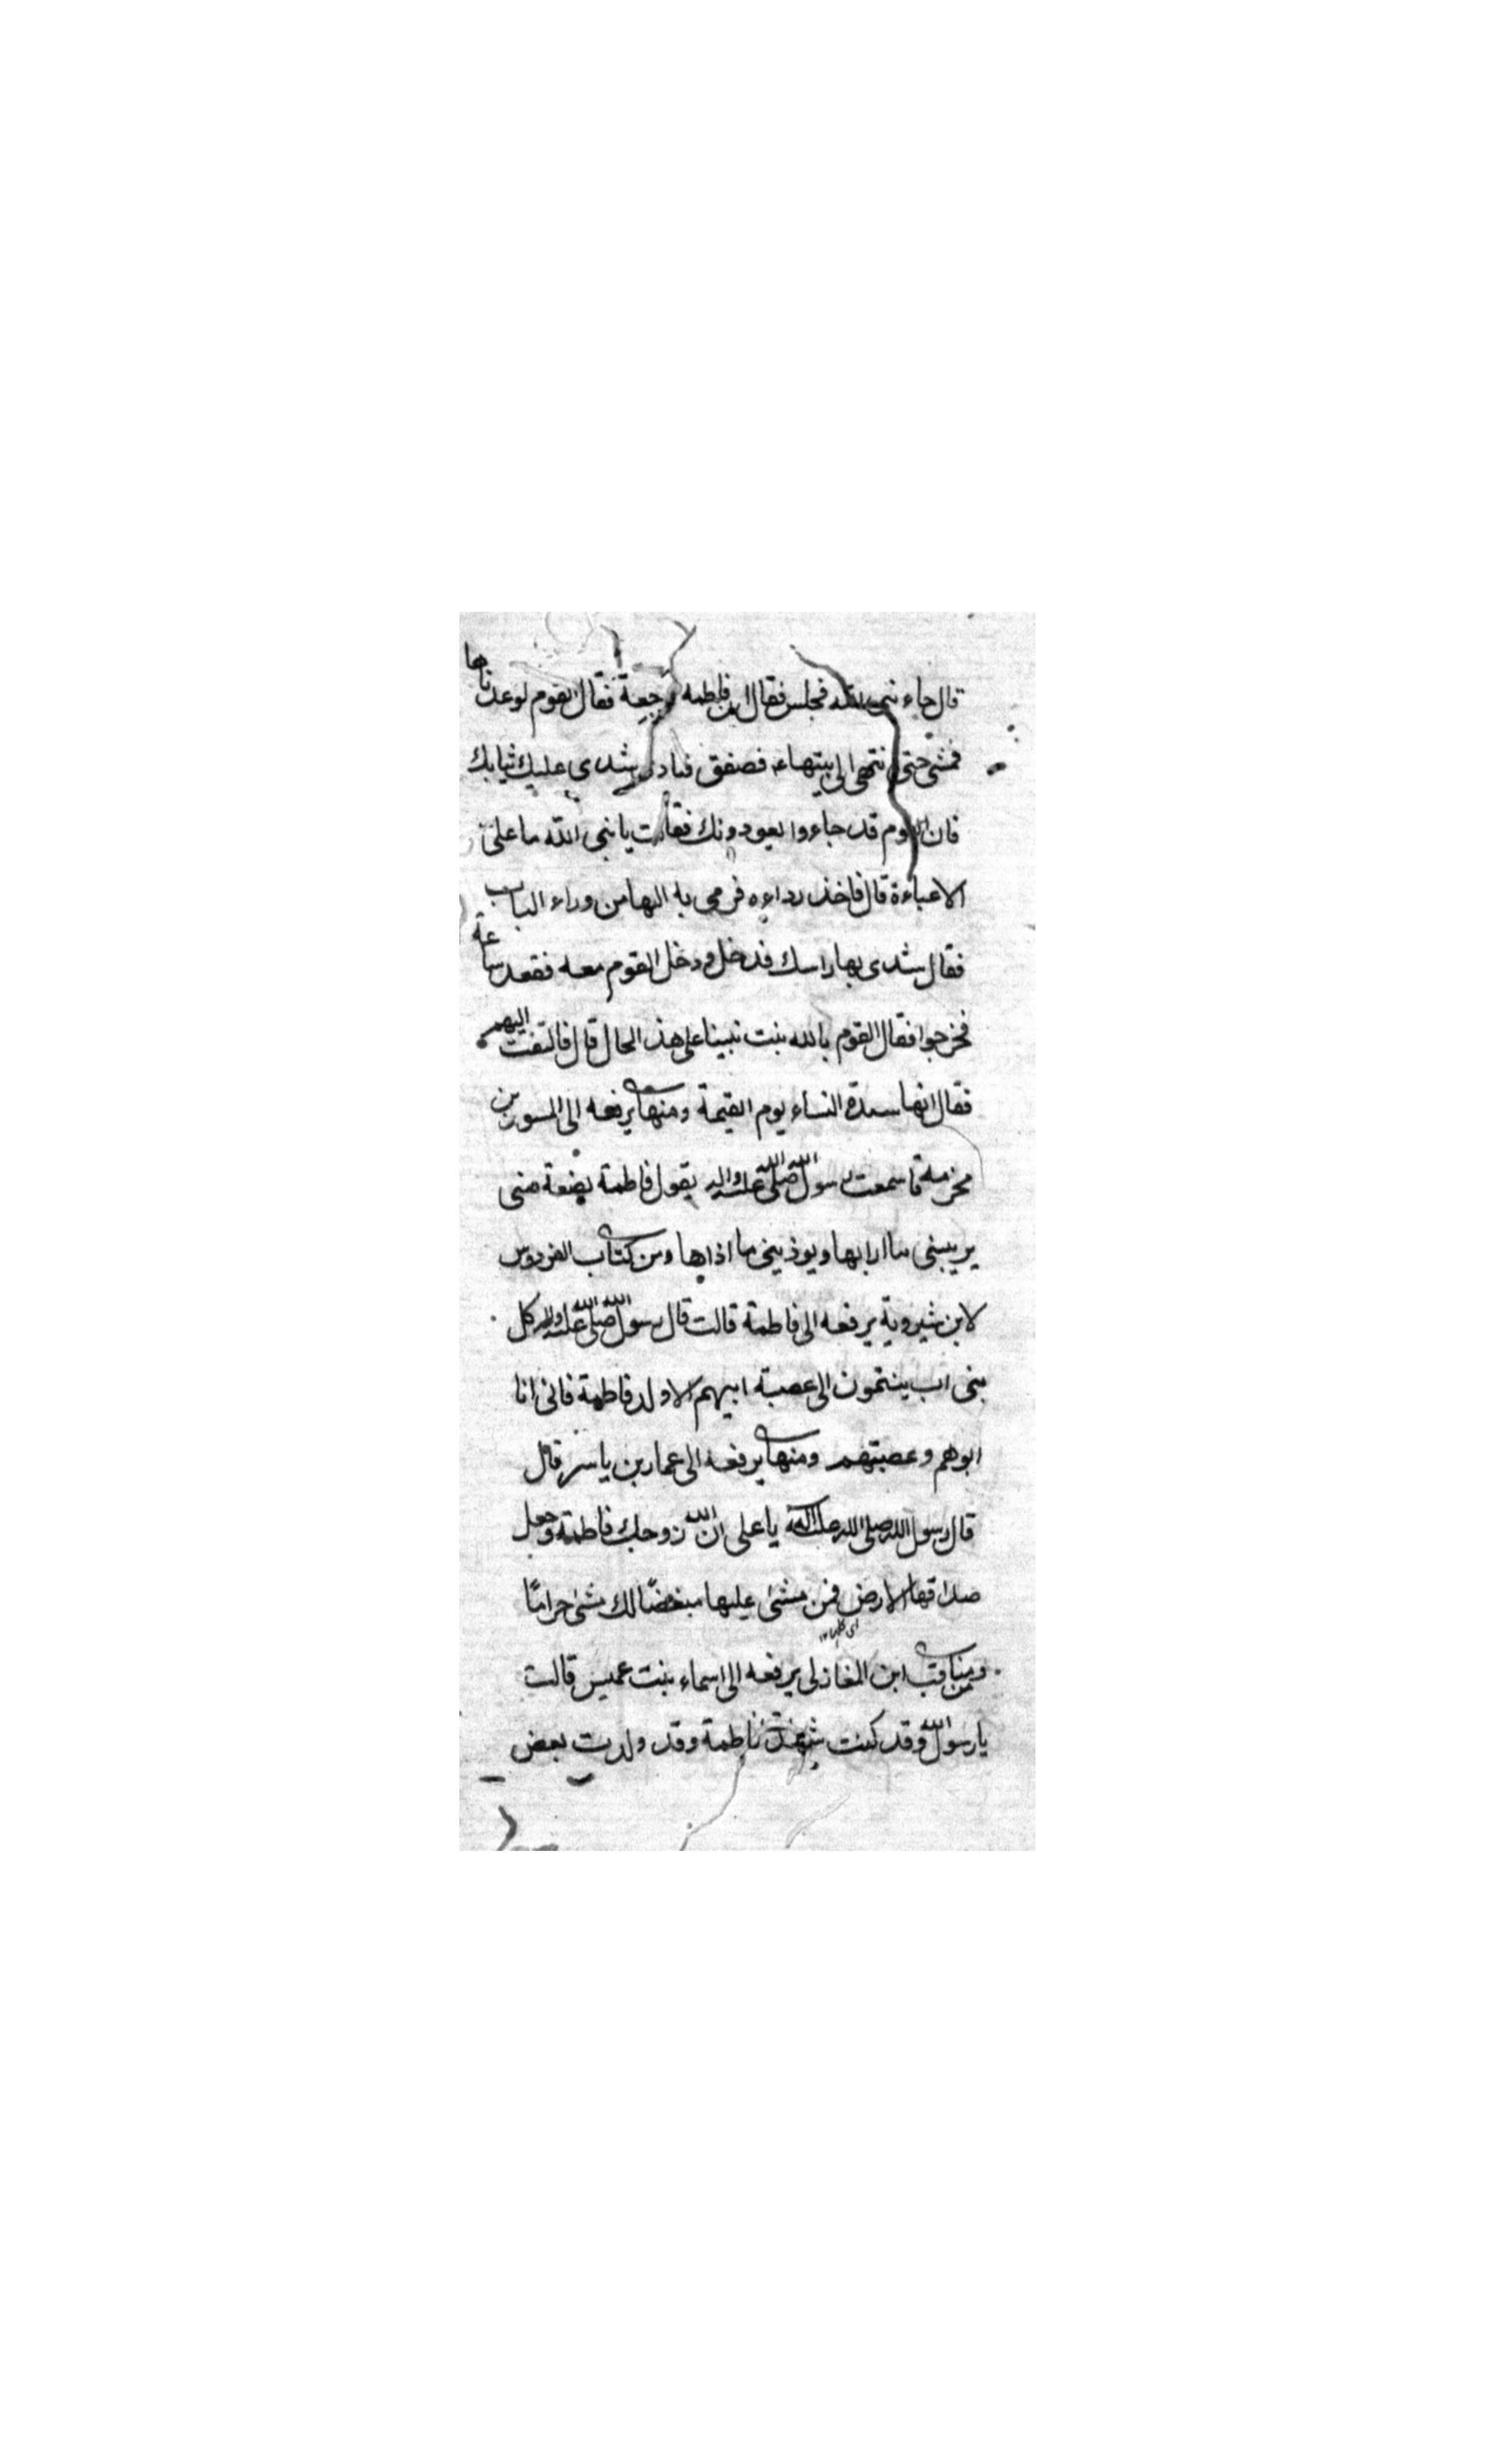 قال جاء نبى الله فجلس فقال ان فاطمه وجعة فقال القوم لوعدناها
فمشى حتى انتهى الى بيتهاء فصفق فنادى شدى عليك ثيابك
فان القوم قد جاءوا يعودونك فقالت يا نبى الله ما على
الاعباءة قال فاخذ رداءه فرمى به اليها من وراء الباب
فقال شدى بها راسك فدخل ودخل القوم معه فقعد ساعة
فخرجوا فقال القوم بالله بنت نبينا على هذ الحال قال فالتفت اليهم
فقال انها سيدة النساء يوم القيمة ومنها يرفعه الى المسور بن
مخرمة قا سمعت رسول الله صلى الله عليه واله يقول فاطمة بضعة منى
يريبنى ما ارابها ويوذينى ما اذاها ومن كتاب الفردوس
لابن شيروية يرفعه الى فاطمة قالت قال رسول الله صلى الله عليه واله كل
بنى اب ينتمون الى عصبة ابيهم الا ولد فاطمة فانى انا
ابوهم وعصبتهم ومنها يرفعه الى عمار بن ياسر قال
قال رسول الله صلى الله عليه واله يا على ان الله زوجك فاطمة وجعل
صداقها الارض فمن مشى عليها مبغضًا لك مشى حرامًا
ومن مناقب ابن المغازلى يرفعه الى اسماء بنت عميس قالت
يا رسول الله وقد كنت شهدت فاطمة وقد ولدت بعض